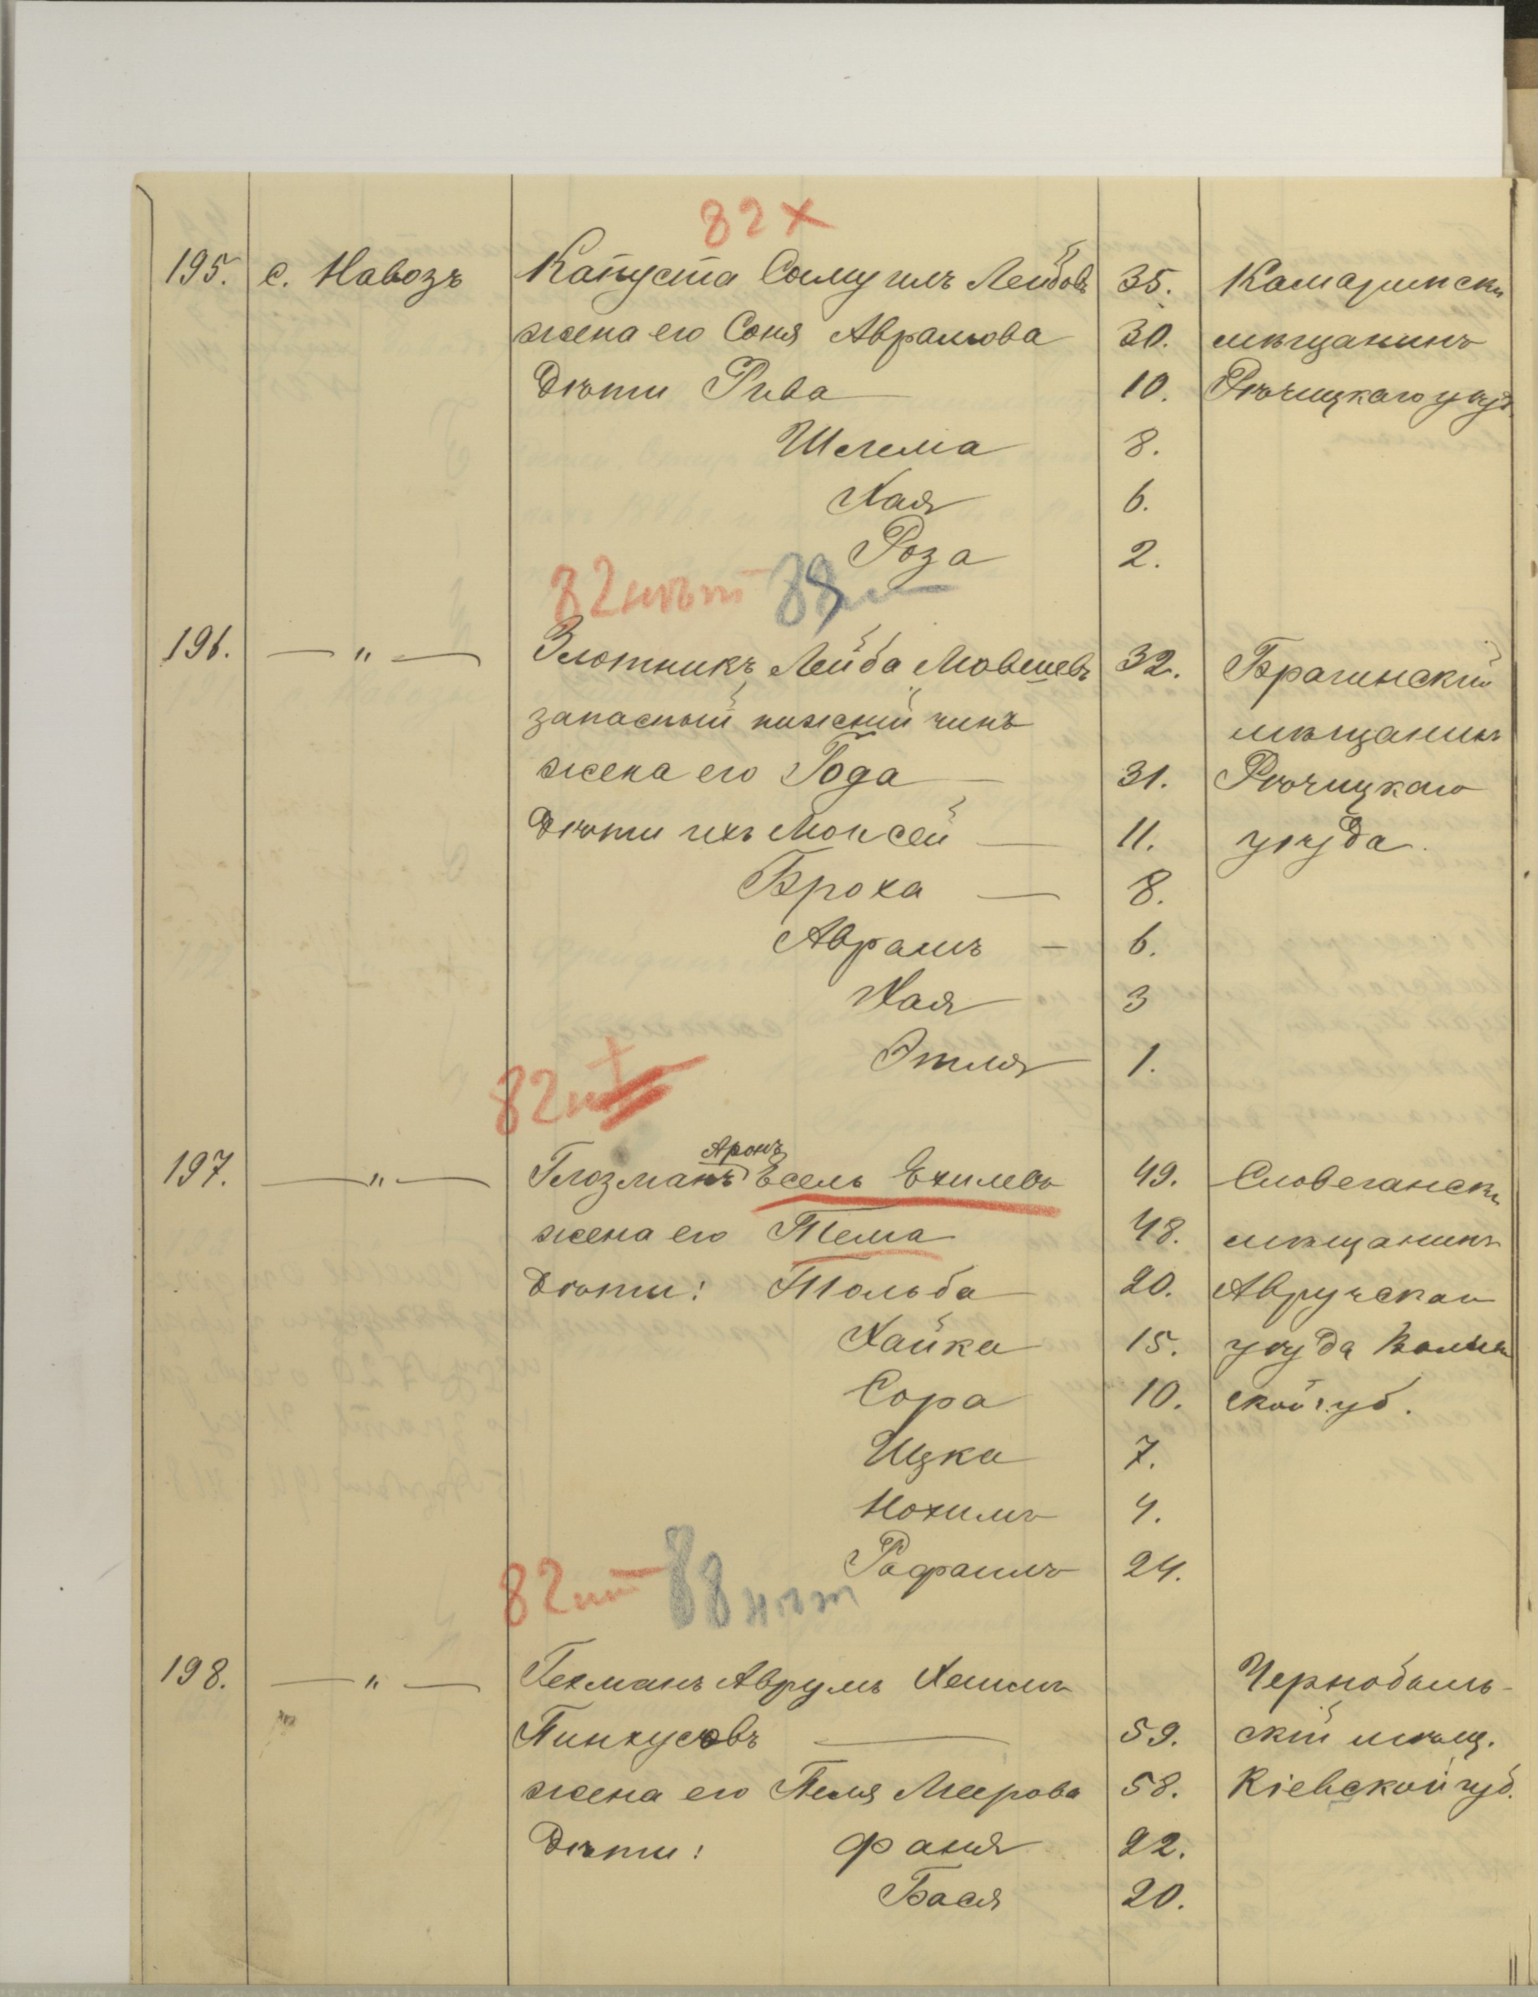 82 х
195. с. Навозъ Капуста Самуилъ Лейбовъ 35. Камаринскій
жена его Соня Аврамова 30. мѣщанинъ
Дѣти Рива 10. Рѣчицкаго уѣзд
Шлема 8.
Хая 6.
Роза 2.
82 нѣт 88
196. — " — Злотникъ Лейба Мовшевъ 32. Брагинскій
запасный нижній чинъ мѣщанинъ
жена его Года — 31. Рѣчицкаго
Дѣти ихъ Мойсей — 11. уѣзда.
Броха — 8.
Аврамъ — 6.
Хая 3
Этля 1.
82
Аронъ
197. — " — Глозманъ Есель Ехилевъ 49. Словеганскі
жена его Тема 48. мѣщанинъ
Дѣти: Тольба 20. Авручскаго
Хайка 15. уѣзда Волын
Сора 10. ской губ.
Ицка 7.
Нохимъ 4.
Рафаилъ 24.
82 нѣт 88 нѣт
198. — " — Гехманъ Аврумъ Чернобыль-
Пинхусовъ — 59. скій мѣщ.
жена его Пеля Меерова 58. Кіевской губ.
Дѣти: Фаня 22.
Бася 20.